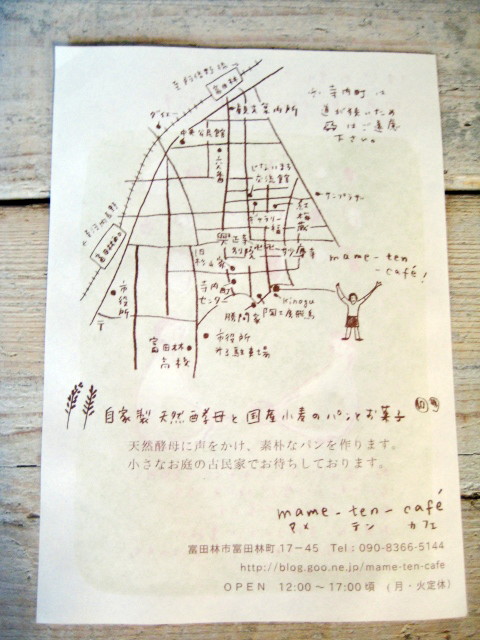 至阿倍野橋
富田林
観光案内所
※寺内町は
道が狭いため
車はご遠慮
下さい。
ダイエー
中央公民館
じないまち
交流館
サンプラザ
ギャラリー
紅梅蔵
至河内長野
富田林西口
興正寺
別院
旧杉山家
mame-ten
-café!
市役所
〒
寺内町
センター
kinogu
陶工房
勝間家
市役所
富田林
高校
駐車場
自家製天然酵母と国産小麦のパンとお菓子
天然酵母に声をかけ、素朴なパンを作ります。
小さなお庭の古民家でお待ちしております。
mame-ten-café
マメ テン カフェ
富田林市富田林町17−45 Tel：090-8366-5144
http://blog.goo.ne.jp/mame-ten-cafe
OPEN 12:00〜17:00頃 (月・火定休)